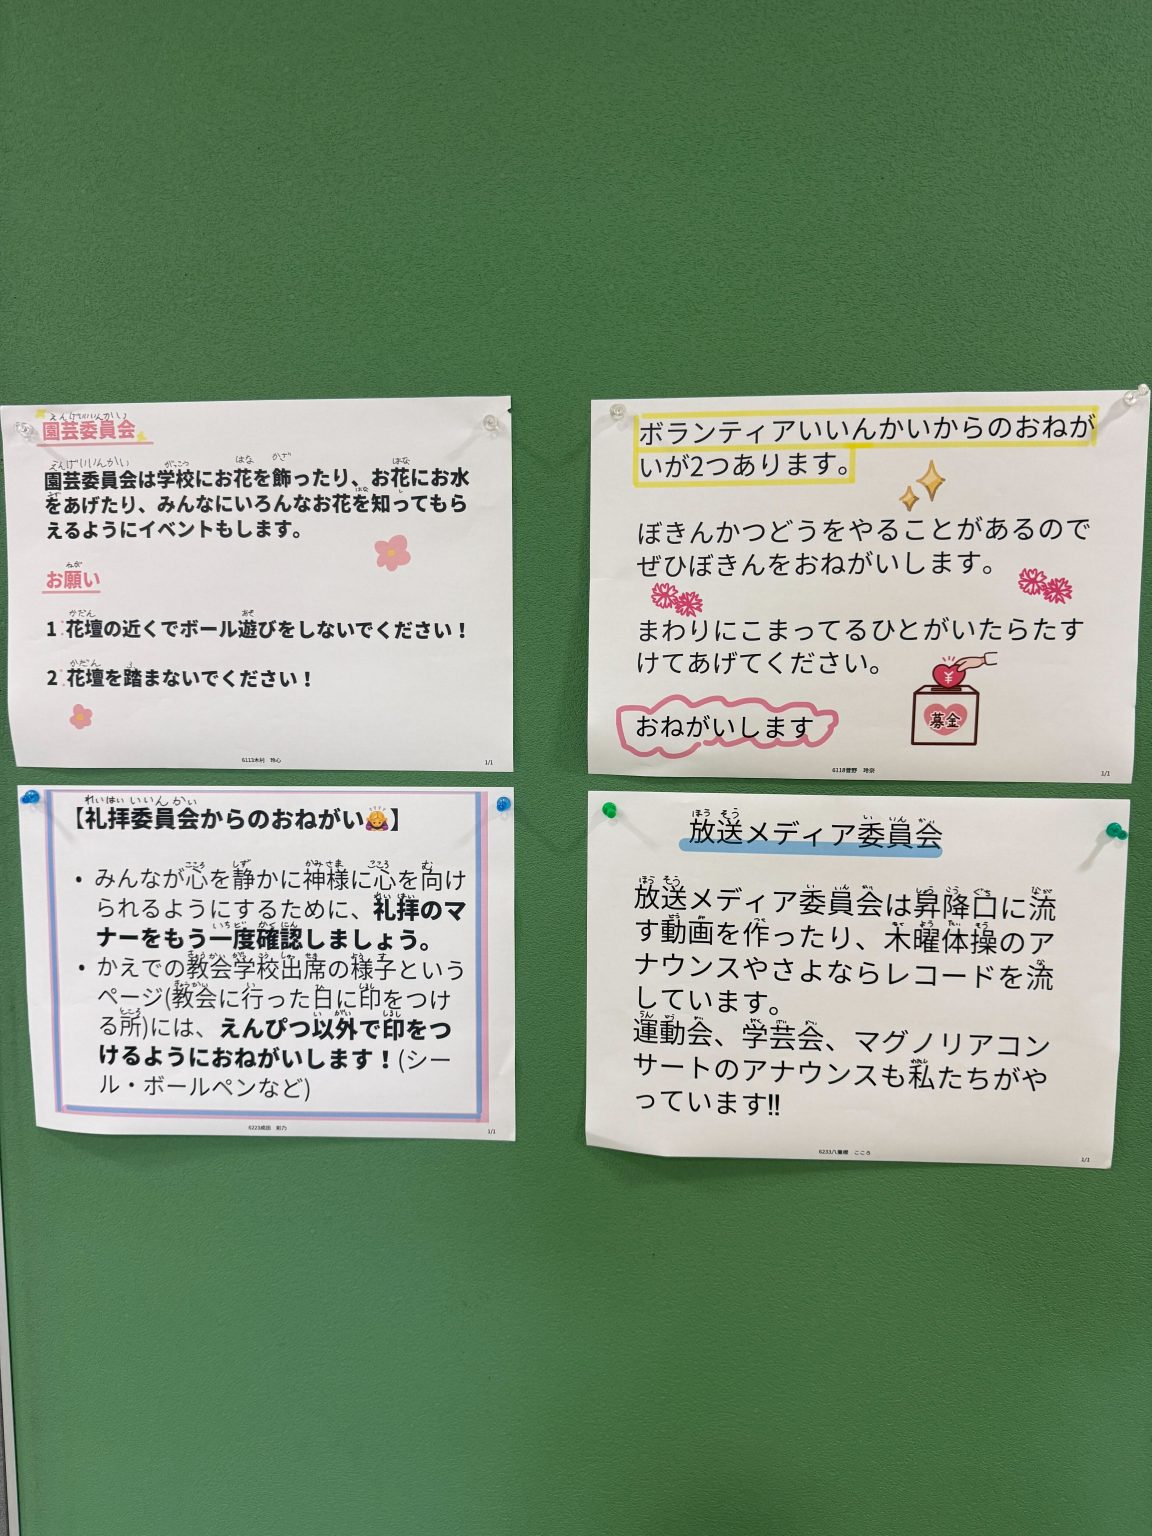 園芸委員会
園芸委員会は学校にお花を飾ったり、お花にお水
をあげたり、みんなにいろんなお花を知ってもら
えるようにイベントもします。
お願い
1 花壇の近くでボール遊びをしないでください！
2 花壇を踏まないでください！
1/1
ボランティアいいんかいからのおねが
いが2つあります。
ぼきんかつどうをやることがあるので
ぜひぼきんをおねがいします。
まわりにこまってるひとがいたらたす
けてあげてください。
¥
募金
おねがいします
6118菅野 玲奈
1/1
【礼拝委員会からのおねがい🙇】
• みんなが心を静かに神様に心を向け
られるようにするために、礼拝のマ
ナーをもう一度確認しましょう。
• かえでの教会学校出席の様子という
ページ(教会に行った日に印をつけ
る所)には、えんぴつ以外で印をつ
けるようにおねがいします！(シー
ル・ボールペンなど)
1/1
放送メディア委員会
放送メディア委員会は昇降口に流
す動画を作ったり、木曜体操のア
ナウンスやさよならレコードを流
しています。
運動会、学芸会、マグノリアコン
サートのアナウンスも私たちがや
っています!!
6233八重樫 こころ
1/1